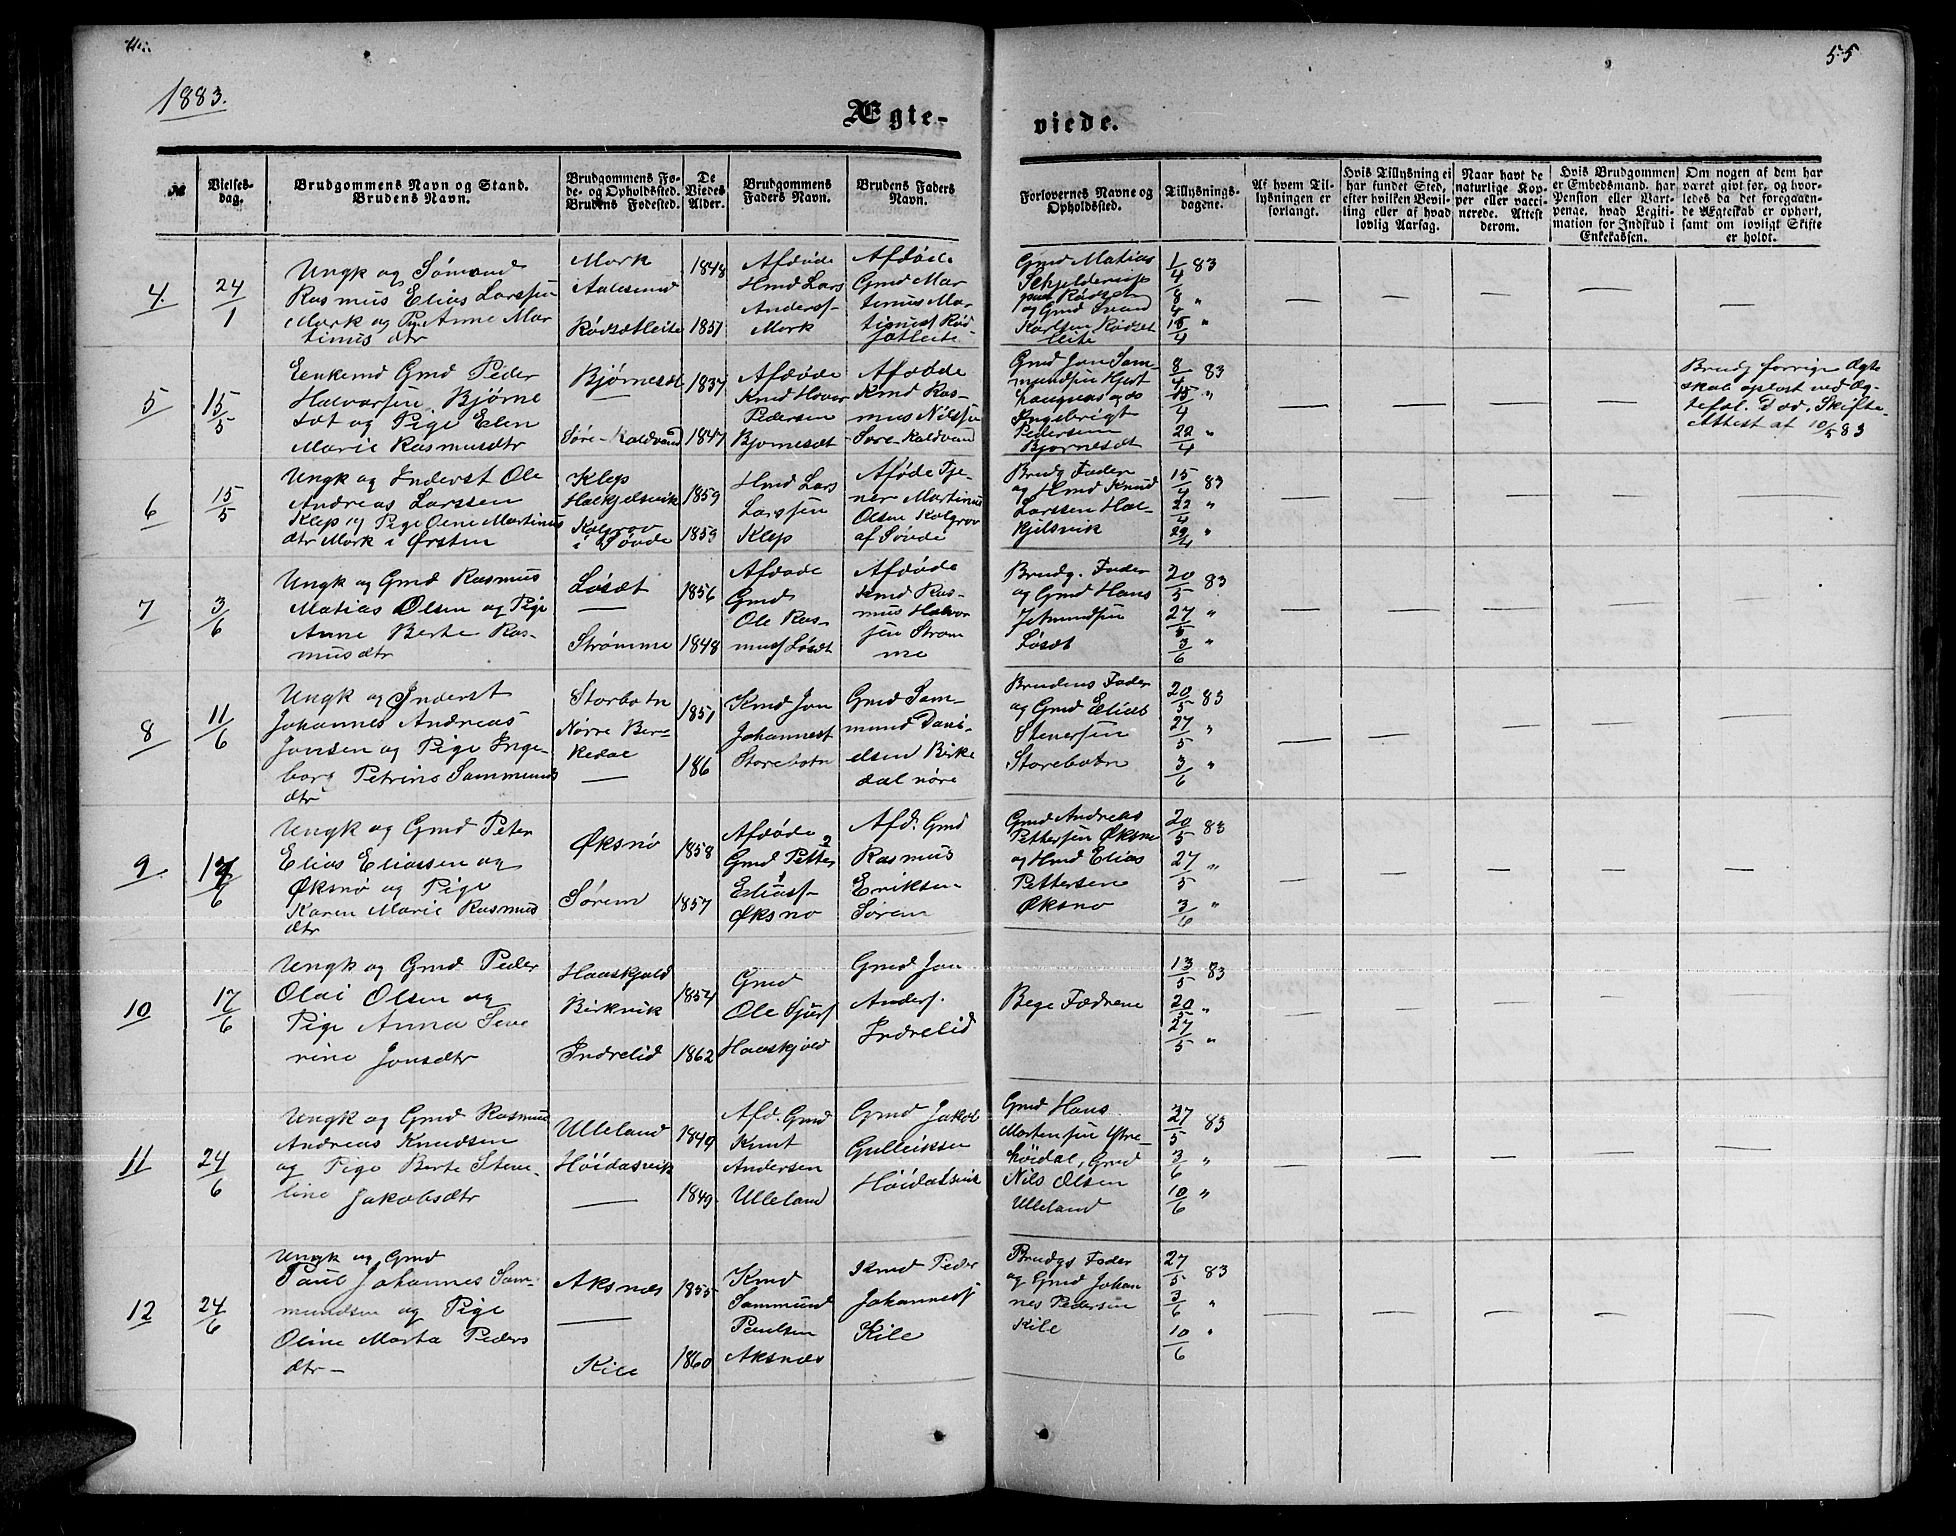 1883.
55
Ægte-
viede.
№
Vielses-
dag.
Brudgommens Navn og Stand.
Brudens Navn.
Brudgommens Fø-
de- og Opholdssted.
Brudens Fødested.
De
Viedes
Alder.
Brudgommens
Faders Navn.
Brudens Faders
Navn.
Forlovernes Navne og
Opholdssted.
Tillysnings-
dagene.
Af hvem Til-
lysningen er
forlangt.
Hvis Tillysning ei
har fundet Sted,
efter hvilken Bevil-
ling eller af hvad
lovlig Aarsag.
Naar havt de
naturlige Kop-
per eller vacci-
nerede. Attest
derom.
Hvis Brudgommen
er Embedsmand, har
Pension eller Vart-
penge, hvad Legiti-
mation for Indskud i
Enkekassen.
Om nogen af dem har
været givt før, og hvor-
ledes da det foregaaen-
de Ægteskab er ophørt,
samt om lovligt Skifte
er holdt.
4.
24/1
Ungk og Sømand
Rasmus Elias Larssen
Mork og Pige Anne Mar
tinus dtr
Mork
Aalesund
Rødsætleite
1848
1851
Afdøde
Hmd Lars
Anders f
Mork
Afdøde
Gmd Mar
tinus Mar
tinus f Rød
sætleite
Gmd Matias
Schjelderup
Rødset
og Gmd
Karlsen Rødset
leite
1/4 83
8/4 "
15/4 "
5
15/5
Enkemd Gmd Peder
Halvorsen Bjørne
sæt og Pige Elen
Marie Rasmusdtr
Bjørnesæt
Søre-Kaldvand
1837
1847
Afdøde
Kmd Hovar
Pedersen
Bjørnesæt
Afdøde
Kmd Ras-
mus Nilssen
Søre Kaldvand
Gmd Jon Sam-
mundsen Hjort
haugnes og do
Ingebrigt
Pedersen
Bjørnesæt
8/4 83
15/4 "
22/4 "
Brudg forrige Ægte
skab opløst ved Æg-
tefæl. Død, Skifte
Attest af 10/5 83
6
15/5
Ungk og Inderst Ole
Andreas Larssen
Klep og Pige Oline Martinus
dtr Mork i Ørsten
Klep
Halkjelsvik
Kolgrov
i Søvde
1859
1859
Hmd Lars
Larssen
Klep
Afdøde Tje-
ner Martinus
Olsen Kolgrov
af Søvde
Brudg Fader
og Hmd Knud
Larssen Hal-
kjelsvik
15/4 83
22/4 "
29/4 "
7
3/6
Ungk og Gmd Rasmus
Matias Olsen og Pige
Anne Berte Ras-
musdtr
Løsæt
Strømme
1856
1848
Afdøde
Gmd
Ole Ras-
mus f Løsæt
Afdøde
Kmd Ras-
mus Halvor
sen Strøm
me
Brudg. Fader
og Gmd Hans
Jetmundsen
Løsæt
20/5 83
27/5 "
3/6 "
8
11/6
Ungk og Inderst
Johannes Andreas
Jonsen og Pige Inge-
borg Petrine Sammunds
dtr
Storbotn
Nørre Bir-
kedal
1851
186
Kmd Jon
Johannes f
Storebotn
Gmd Sam-
mund Dani-
elsen Birke
dal nøre
Brudens Fader
og Gmd Elias
Stenersen
Storebotn
20/5 83
27/5 "
3/6 "
9
17/6
Ungk og Gmd Peter
Elias Eliassen og
Øksnø og Pige
Karen Marie Rasmus
dtr
Øksnø
Sørem
1858
1857
Afdøde
Gmd Petter
Elias f
Øksnø
Afd. Gmd
Rasmus
Eriksen
Sørem
Gmd Andreas
Pettersen Øksnø
og Hmd Elias
Pettersen
Øksnø
20/5 83
27/5 "
3/6 "
10
17/6
Ungk og Gmd Peder
Olai Olsen og
Pige Anna Seve
rine Jonsdtr
Haaskjold
Birkvik
Indrelid
1854
1862
Gmd
Ole Sjur f
Haaskjold
Gmd Jon
Anders f.
Indrelid
Bege Fædrene
13/5 83
20/5 "
27/5 "
11
24/6
Ungk og Gmd Rasmus
Andreas Knudsen
og Pige Berte Steve-
line Jakobsdtr
Ulleland
Høidasvik
1849
1849
Afd. Gmd
Knut
Andersen
Ulleland
Gmd Jakob
Gulleiksen
Høidalsvik
Gmd Hans
Mortensen Ytre-
høidal, Gmd
Nils Olsen
Ulleland
27/5 83
3/6 "
10/6 "
12
24/6
Ungk og Gmd
Paul Johannes Sam-
mundsen og Pige
Oline Marta Peders
dtr
Aksnæs
Kile
1855
1860
Kmd
Sammund
Paulsen
Aksnæs
Kmd Peder
Johannes f
Kile
Brudgs Fader
og Gmd Johan
nes Pedersen
Kile
27/5 83
3/6 "
10/6 "